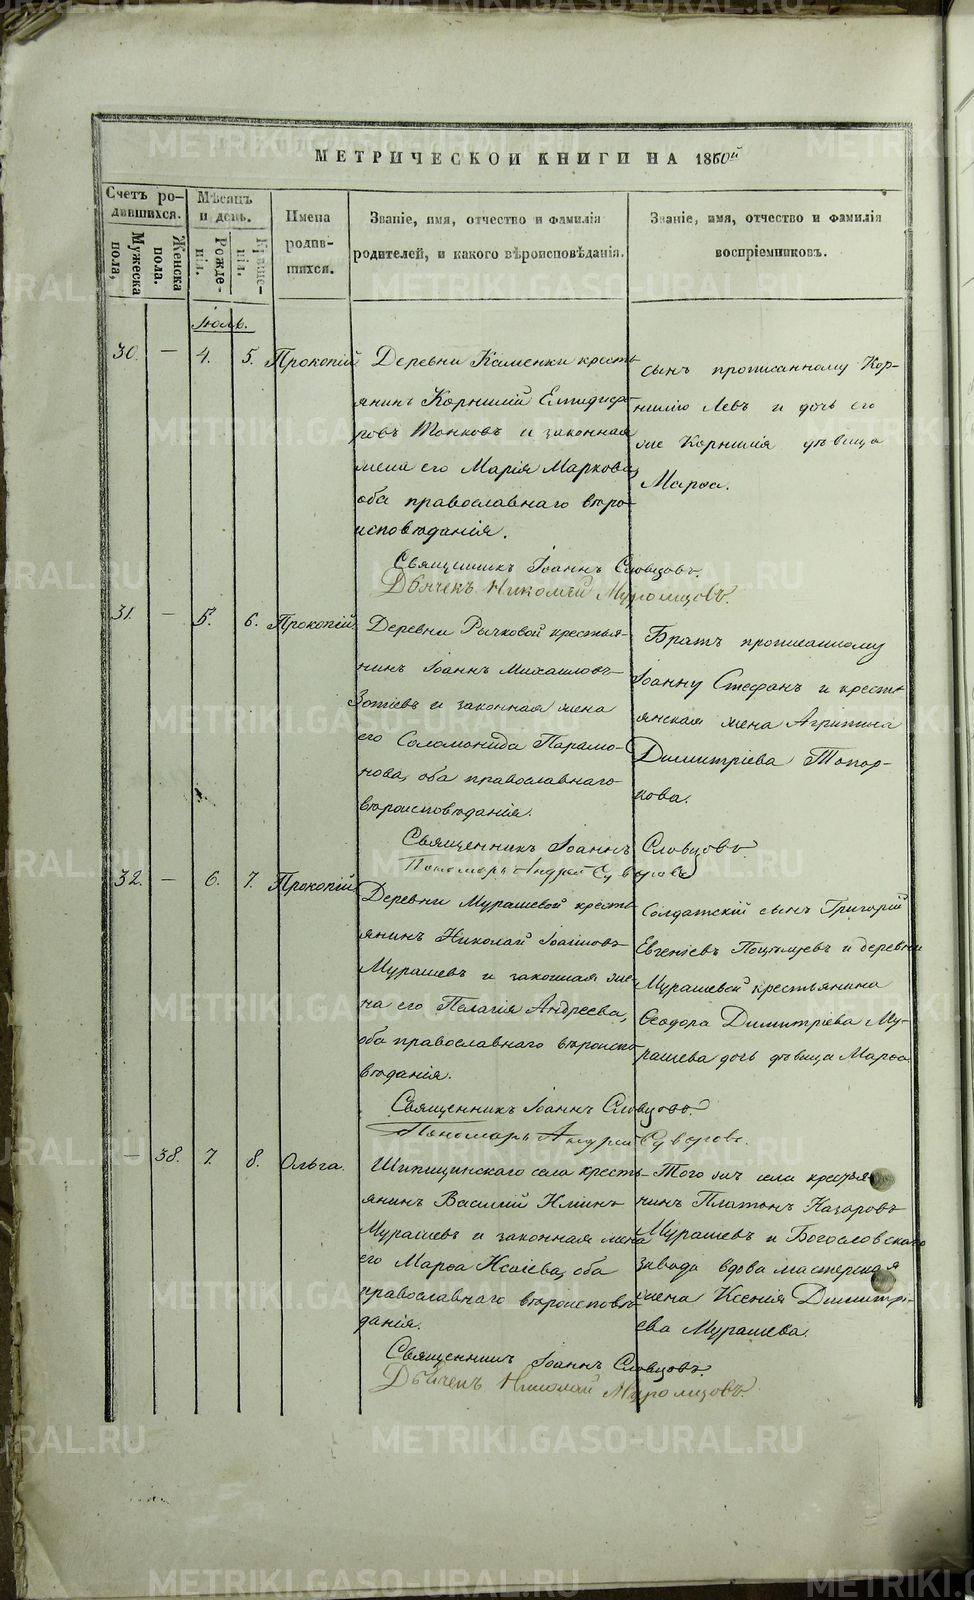 МЕТРИЧЕСКОЙ КНИГИ НА 1860й
Счетъ родившихся.
Мужеска пола,
Женска пола.
Мѣсяцъ и день.
Рожденія.
Крещенія.
Имена родившихся.
Званіе, имя, отчество и фамилія родителей, и какого вѣроисповѣданія.
Званіе, имя, отчество и фамилія воспріемниковъ.
Іюль.
30. — 4. 5. Прокопій
Деревни Каменки кресть-
янинъ Корнилій
ровъ Тонковъ и законная
жена его Марія Маркова,
оба православнаго вѣро-
исповѣданія.
сынъ прописанному Кор-
нилію Левъ и дочь его
же Корнилія дѣвица
Марѳа.
Священникъ Іоаннъ Словцовъ.
Дьячекъ Николай Муромцовъ.
31. — 5. 6. Прокопій
Деревни Рычковой крестья-
нинъ Іоаннъ Михаиловъ
Зотѣевъ и законная жена
его Соломонида Парамо-
нова, оба православнаго
вѣроисповѣданія.
Братъ прописанному
Іоанну Стефанъ и кресть-
янская жена Агрипина
Димитріева Топор-
кова.
Священникъ Іоаннъ Словцовъ
Пономарь Андрей Суворовъ
32. — 6. 7. Прокопій
Деревни Мурашевой кресть-
янинъ Николай
Мурашевъ и законная же-
на его Пелагія Андреева,
оба православнаго вѣроиспо-
вѣданія.
Солдатскій сынъ Григорій
Евгеніевъ и деревни
Мурашевой крестьянина
Ѳеодора Димитріева Му-
рашева дочь дѣвица Марѳа
Священникъ Іоаннъ Словцовъ.
Пономарь Андрей Суворовъ.
— 38. 7. 8. Ольга.
Шипицинскаго села кресть-
янинъ Василій Ильинъ
Мурашевъ и законная жена
его Марѳа Исаіева, оба
православнаго вѣроисповѣ-
данія.
Того же села крестья-
нинъ Платонъ Назаровъ
Мурашевъ и Богословскаго
завода вдова мастерская
жена Ксенія Димитрі-
ева Мурашева.
Священникъ Іоаннъ Словцовъ.
Дьячекъ Николай Муромцовъ.
METRIKI.GASO-URAL.RU